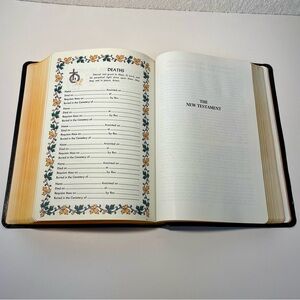 DEATHS
Eternal rest grant to them, O Lord, and
let perpetual light shine upon them; may
they rest in peace, Amen.
Name Anointed on
Died on at
Requiem Mass on by Rev.
Buried in the Cemetery of
Name Anointed on
Died on at
Requiem Mass on by Rev.
Buried in the Cemetery of
Name Anointed on
Died on at
Requiem Mass on by Rev.
Buried in the Cemetery of
Name Anointed on
Died on at
Requiem Mass on by Rev.
Buried in the Cemetery of
Name Anointed on
Died on at
Requiem Mass on by Rev.
Buried in the Cemetery of
Name Anointed on
Died on at
Requiem Mass on by Rev.
Buried in the Cemetery of
THE
NEW TESTAMENT